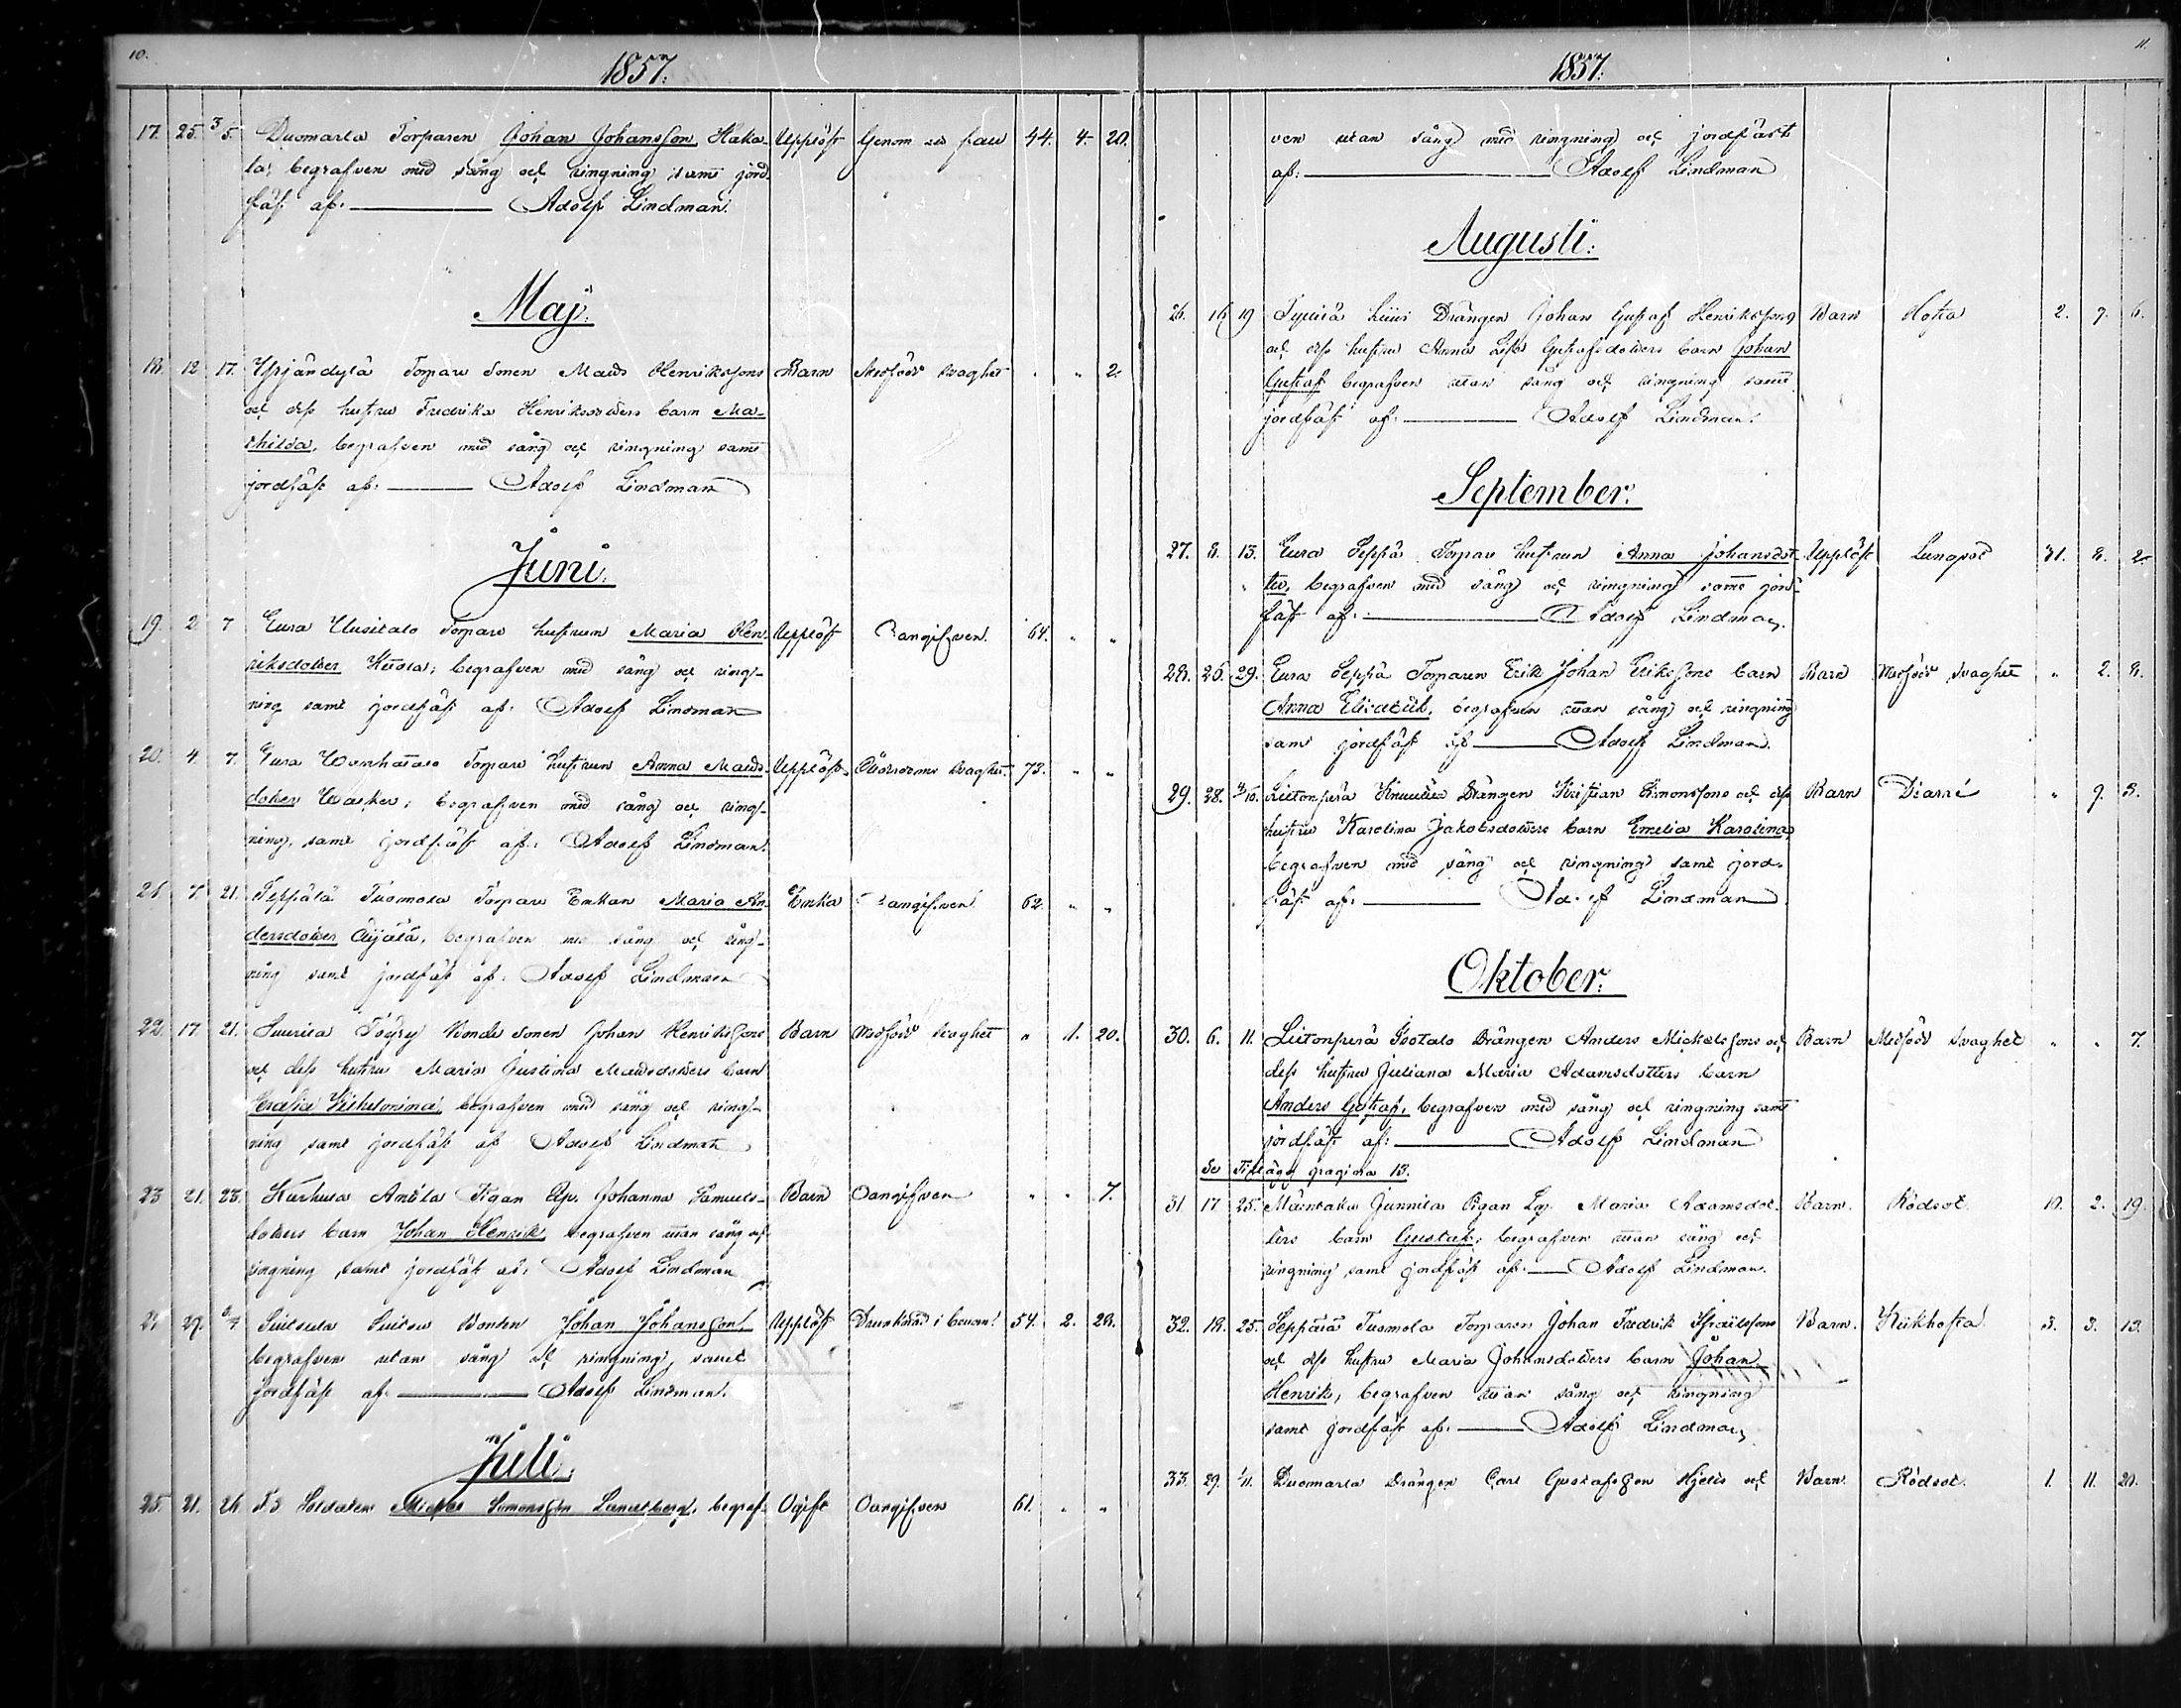 10.
1857.
17. 25. 3/5. Duomarla Torparen Johan Johansson Haka- Upplöst Genom ett fall 44. 4. 20.
la, begrafven med sång och ringning samt jord-
fäst af: Adolf Lindman.
Maj.
18. 12. 17. Yrjändylä Torpare Sonen Matts Henrikssons Barn Medfödd svaghet " " 2.
och dess hustru Fredrika Henriksdotters barn Ma-
thilda, begrafven med sång och ringning samt
jordfäst af: Adolf Lindman
Juni.
19. 2 7 Eura Uusitalo Torpare hustrun Maria Hen- Upplöst Oangifven. 64. " "
riksdotter begrafven med sång och ring-
ning samt jordfäst af: Adolf Lindman
20. 4. 7. Eura Torpare hustrun Anna Matts- Upplöst Ålderdoms svaghet. 73. " "
dotter begrafven med sång och ring-
ning, samt jordfäst af: Adolf Lindman.
21 7. 21. Seppälä Tuomola Torpare Enkan Maria An- Enka Oangifven 62. " "
dersdotter Äijälä, begrafven med sång och ring-
ning samt jordfäst af: Adolf Lindman
22. 17 21. Suurila Bonde Sonen Johan Henrikssons Barn Medfödd svaghet " 1. 20.
och dess hustru Maria Justina Mattsdotters barn
Serafia Vilhelmina, begrafven med sång och ring-
ning samt jordfäst af Adolf Lindman
23 21. 28. Anöla Pigan Johanna Samuels- Barn Oangifven " " 7.
dotters barn Johan Henrik, begrafven utan sång och
ringning samt jordfäst af: Adolf Lindman
24 29. Bonden Johan Johansson, Upplöst Drunknad i 54. 2. 28.
begrafven utan sång och ringning, samt
jordfäst af: Adolf Lindman.
Juli.
25. 21. 26 F.d Soldaten Michel Simonsson Landtberg, begraf- Ogift Oangifven 61. " "
11.
1857.
ven utan sång med ringning och jordfäst
af: Adolf Lindman
Augusti.
26. 16 19 Drängen Johan Gustaf Henrikssons Barn Hosta 2. 7. 6.
och dess hustru Anna Lisa Gustafsdotters barn Johan
Gustaf begrafven utan sång och ringning samt
jordfäst af: Adolf Lindman.
September.
27. 8. 13. Eura Seppä Torpare hustrun Anna Johansdot- Upplöst Lungsot 31. 8. 2.
ter, begrafven med sång och ringning samt jord-
fäst af: Adolf Lindman.
28. 26. 29. Eura Seppä Torparen Erik Johan Erikssons barn Barn Medfödd svaghet " 2. 8.
Anna Elisabeth, begrafven utan sång och ringning
samt jordfäst af Adolf Lindman.
29. 28. 4/10. Lietonperä Knuutila Drängen Kristian Simonssons och dess Barn Diarré " 9. 3.
hustru Karolina Jakobsdotters barn Emelia Karolina,
begrafven med sång och ringning samt jord-
fäst af: Adolf Lindman
Oktober.
30. 6. 11. Lietonperä Isotalo Drängen Anders Michelssons och Barn Medfödd svaghet " " 7.
dess hustru Juliana Maria Adamsdotters barn
Anders Gustaf, begrafven med sång och ringning samt
jordfäst af: Adolf Lindman
Se Tillägg pagina 13.
31. 17 25. Mäntaka Junnila Pigan Maria Adamsdot- Barn. Rödsot. 10. 2. 19.
ters barn Gustaf, begrafven utan sång och
ringning samt jordfäst af: Adolf Lindman.
32. 18. 25. Seppälä Tuomola Torparen Johan Fredrik Israelssons Barn. Kikhosta 3. 3. 13.
och dess hustru Maria Johansdotters barn Johan
Henrik, begrafven utan sång och ringning
samt jordfäst af: Adolf Lindman
33. 29. 1/11. Duomarla Drängen Carl Gustafsson Hjelts och Barn. Rödsot. 1. 11. 20.